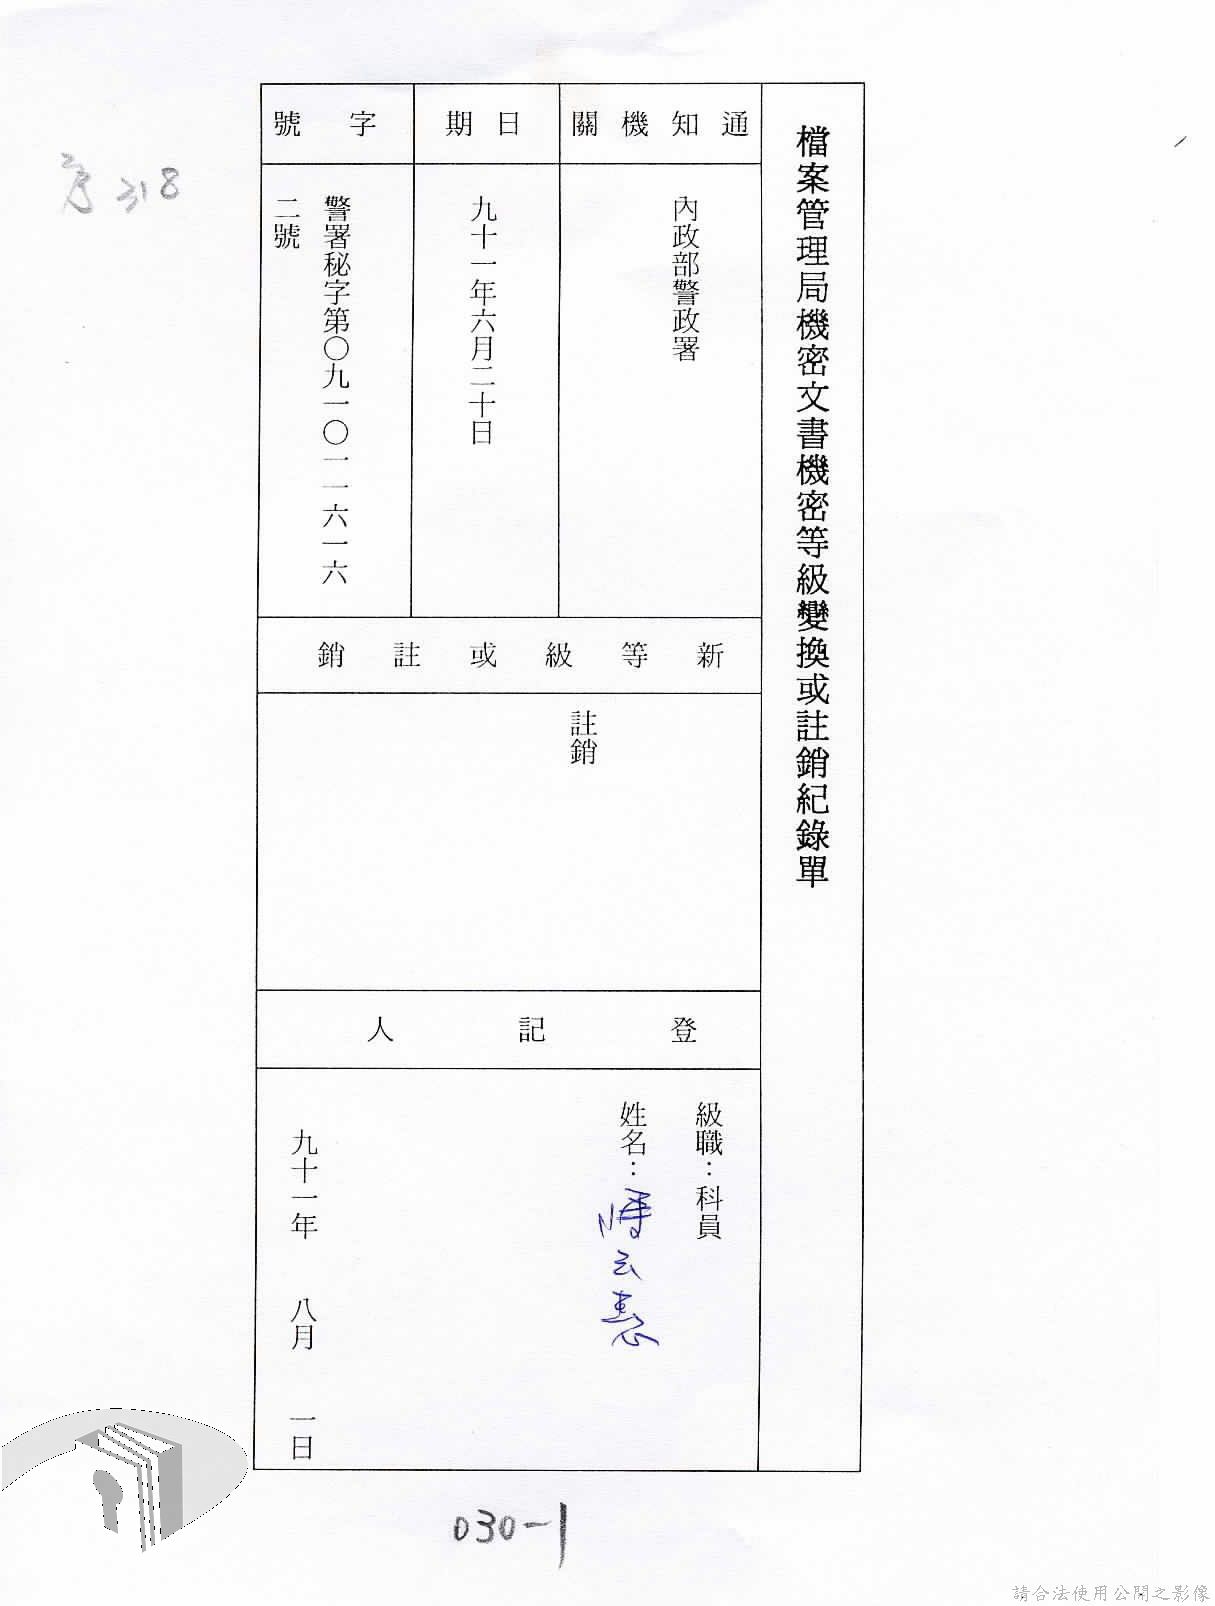 檔案管理局機密文書機密等級變換或註銷紀錄單
通知機關
內政部警政署
日期
九十一年六月二十日
字號
警署秘字第〇九一〇一一六一六
二號
新等級或註銷
註銷
登記人
級職：科員
姓名：
九十一年 八月 一日
318
030-1
請合法使用公開之影像